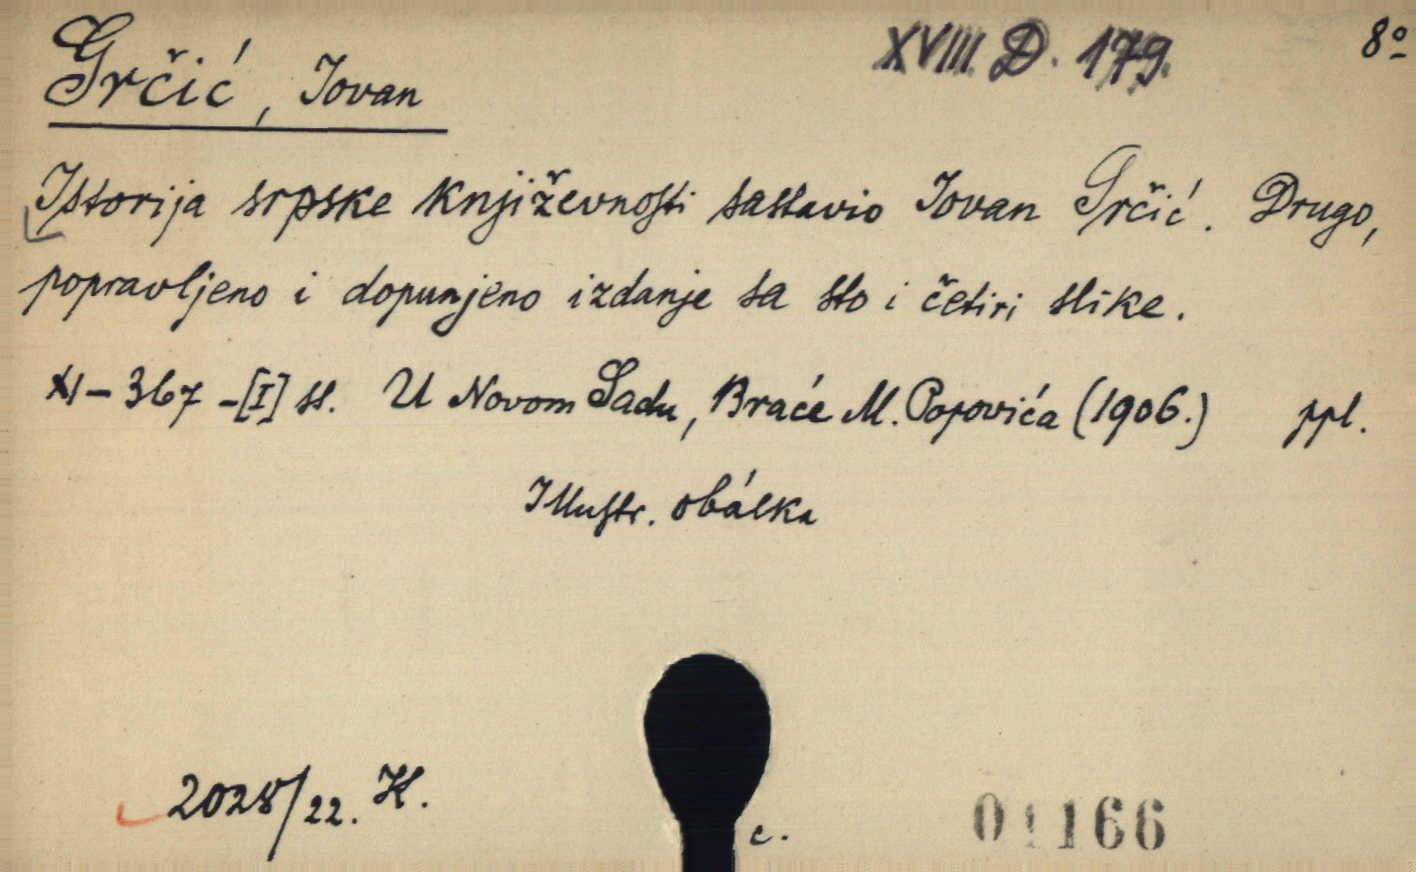 Grčić, Jovan
XVIII D. 179.
8º
Istorija srpske književnosti sastavio Jovan Grčić. Drugo,
popravljeno i dopunjeno izdanje sa sto i četiri slike.
XI – 367 – [I] ss. U Novom Sadu, Braće M. Popovića (1906.) ppl.
Illustr. obálka
2028/22. K.
c.
01166